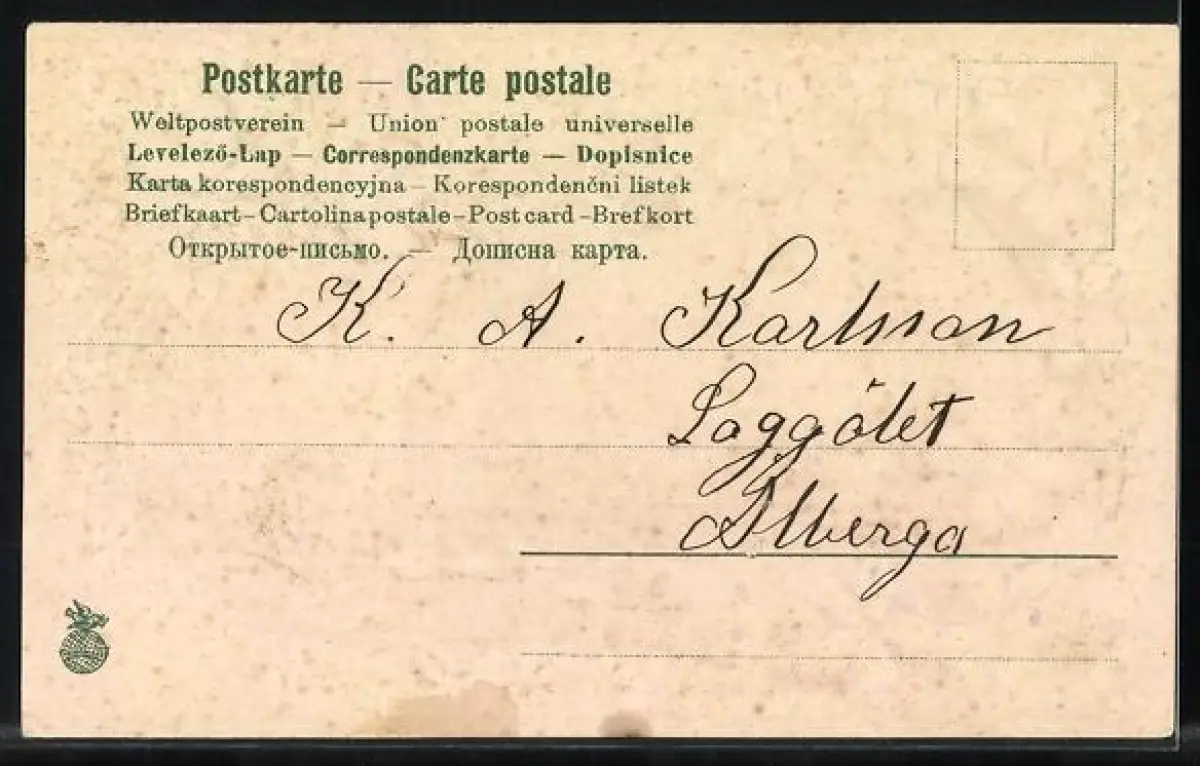 Postkarte — Carte postale
Weltpostverein — Union postale universelle
Levelező-Lap — Correspondenzkarte — Dopisnice
Karta korespondencyjna — Korespondenčni listek
Briefkaart – Cartolina postale – Post card – Brefkort
Открытое-письмо. — Дописна карта.
K. A. Karlsson
Laggölet
Alberga